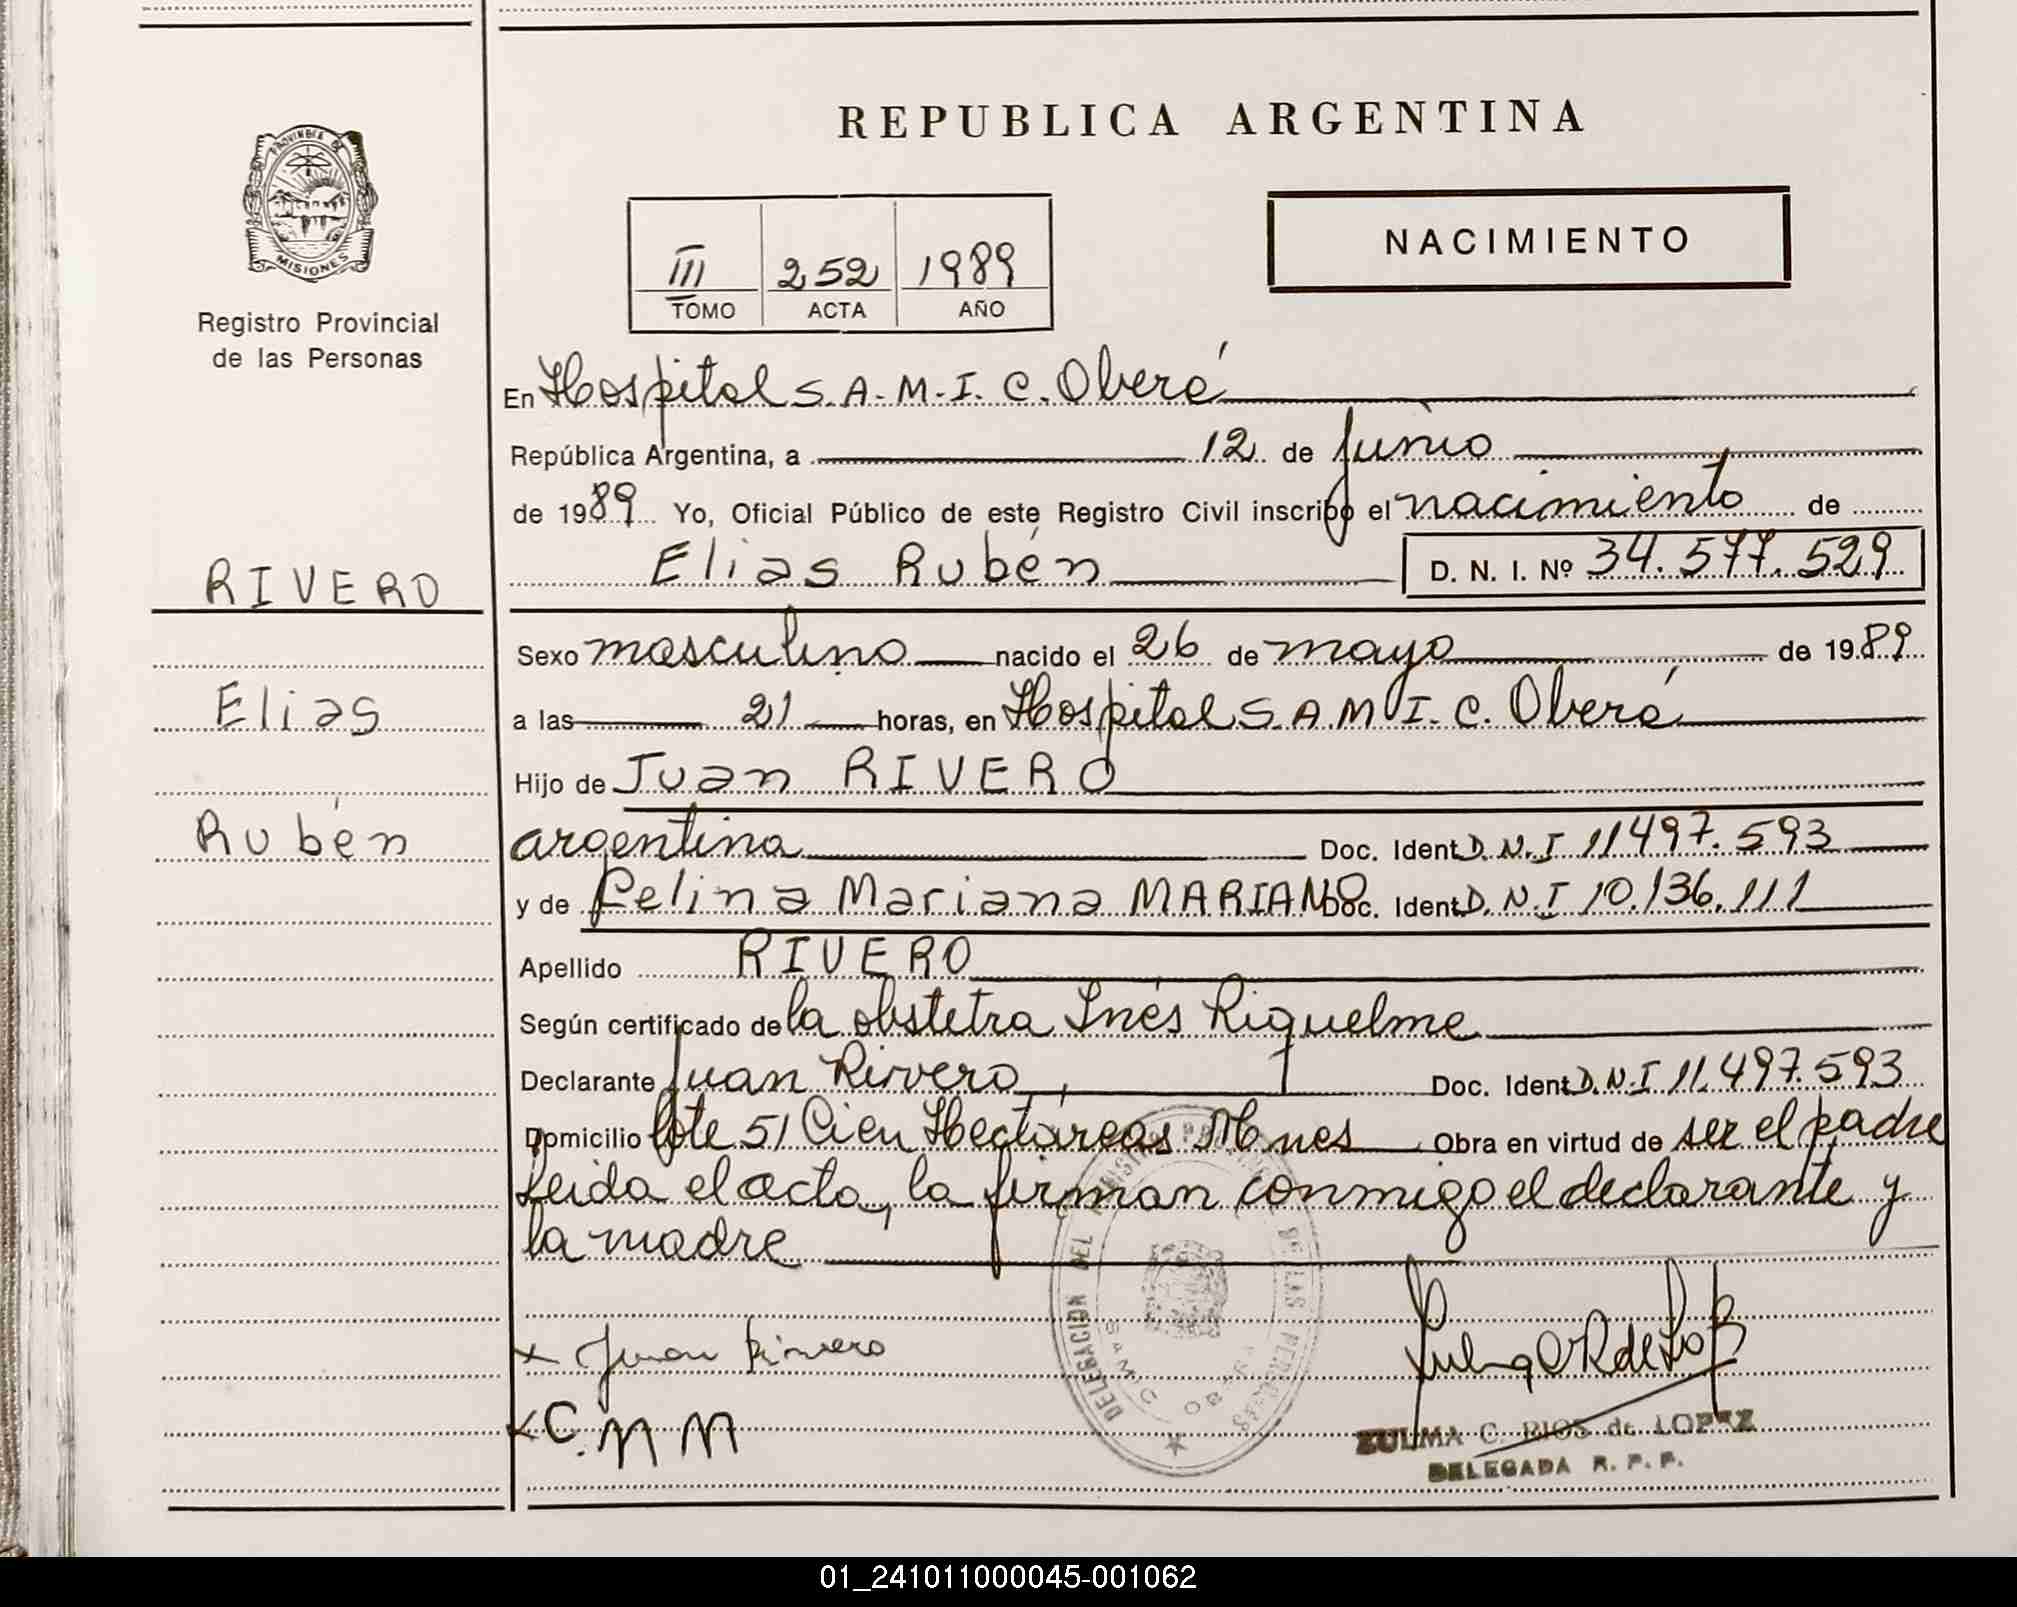 REPUBLICA ARGENTINA
PROVINCIA DE
MISIONES
Registro Provincial
de las Personas
III 252 1989
TOMO ACTA AÑO
NACIMIENTO
En Hospital S.A.M.I.C. Oberá
República Argentina, a 12 de junio
de 1989 Yo, Oficial Público de este Registro Civil inscribo el nacimiento de
Elias Rubén D. N. I. Nº 34.577.529
RIVERO
Elias
Rubén
Sexo masculino nacido el 26 de mayo de 1989
a las 21 horas, en Hospital S.A.M.I.C. Oberá
Hijo de Juan RIVERO
argentina Doc. Ident D.N.I 11497.593
y de Celina Mariana MARIANO Doc. Ident D.N.I 10.136.111
Apellido RIVERO
Según certificado de la obstetra Inés Riquelme
Declarante Juan Rivero, Doc. Ident D.N.I 11.497.593
Domicilio lote 51 Cien Hectáreas Mnes Obra en virtud de ser el padre
Leida el acta, la firman conmigo el declarante y
la madre
x Juan Rivero
x C. M M
DELEGACION DEL DE LAS PERSONAS
ZULMA C. RIOS de LOPEZ
DELEGADA R. P. P.
01_241011000045-001062